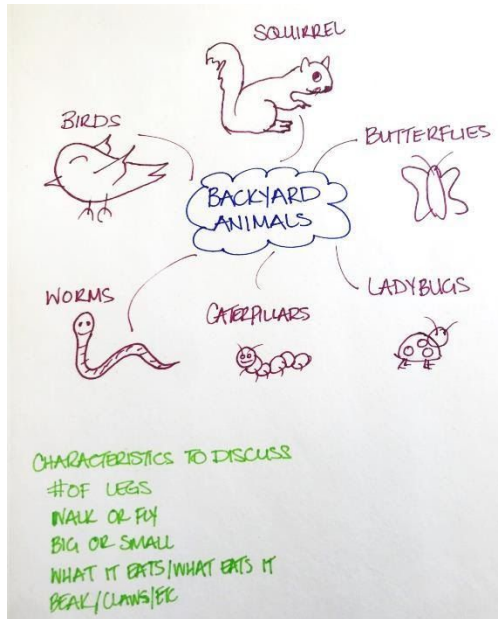 SQUIRREL
BIRDS
BUTTERFLIES
BACKYARD
ANIMALS
WORMS
CATERPILLARS
LADYBUGS
CHARACTERISTICS TO DISCUSS
# OF LEGS
WALK OR FLY
BIG OR SMALL
WHAT IT EATS/WHAT EATS IT
BEAK/CLAWS/ETC